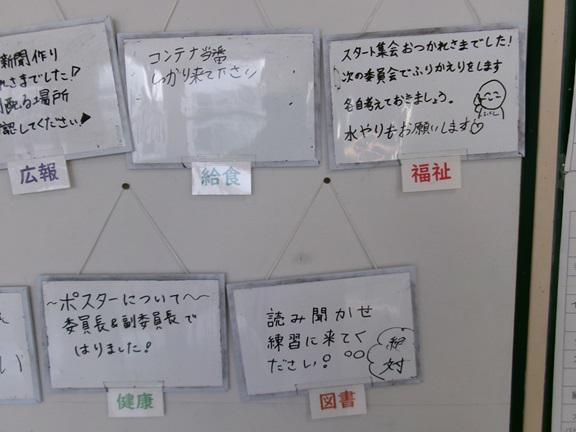 新聞作り
れさまでした!
配る場所
認してください!
広報
コンテナ当番
しっかり来て下さい
給食
スタート集会おつかれさまでした!
次の委員会でふりかえりをします
各自考えておきましょう。
水やりもお願いします♡
福祉
い
~ポスターについて~
委員長&副委員長で
はりました!
健康
読み聞かせ
練習に来てく
ださい!
絶対
図書